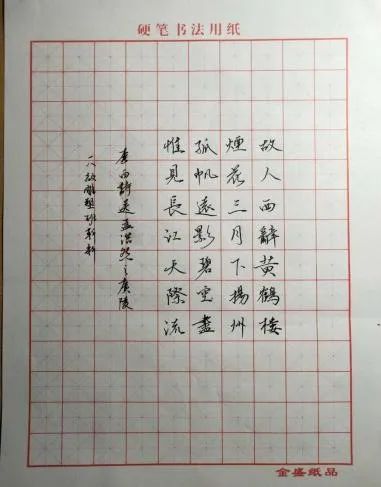 硬笔书法用纸
故人西辭黃鶴樓
煙花三月下揚州
孤帆遠影碧空盡
惟見長江天際流
李白辭送孟浩然之廣陵
一八級雕塑班
金盛纸品